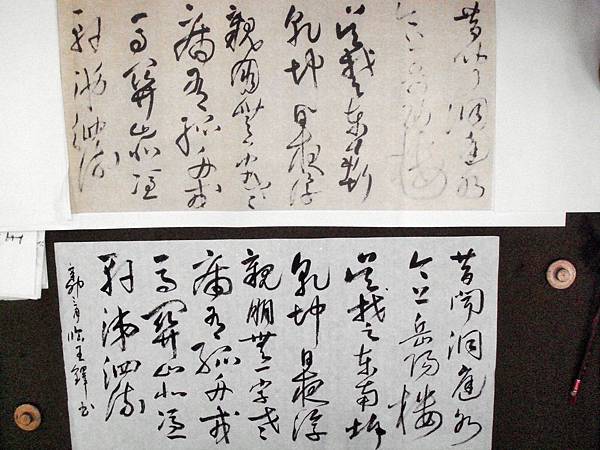 昔聞洞庭水
今上岳陽樓
吳楚東南坼
乾坤日夜浮
親朋無一字老
病有孤舟戎
馬關山北憑
軒涕泗流
昔聞洞庭水
今上岳陽樓
吳楚東南坼
乾坤日夜浮
親朋無一字老
病有孤舟戎
馬關山北憑
軒涕泗流
臨王鐸書